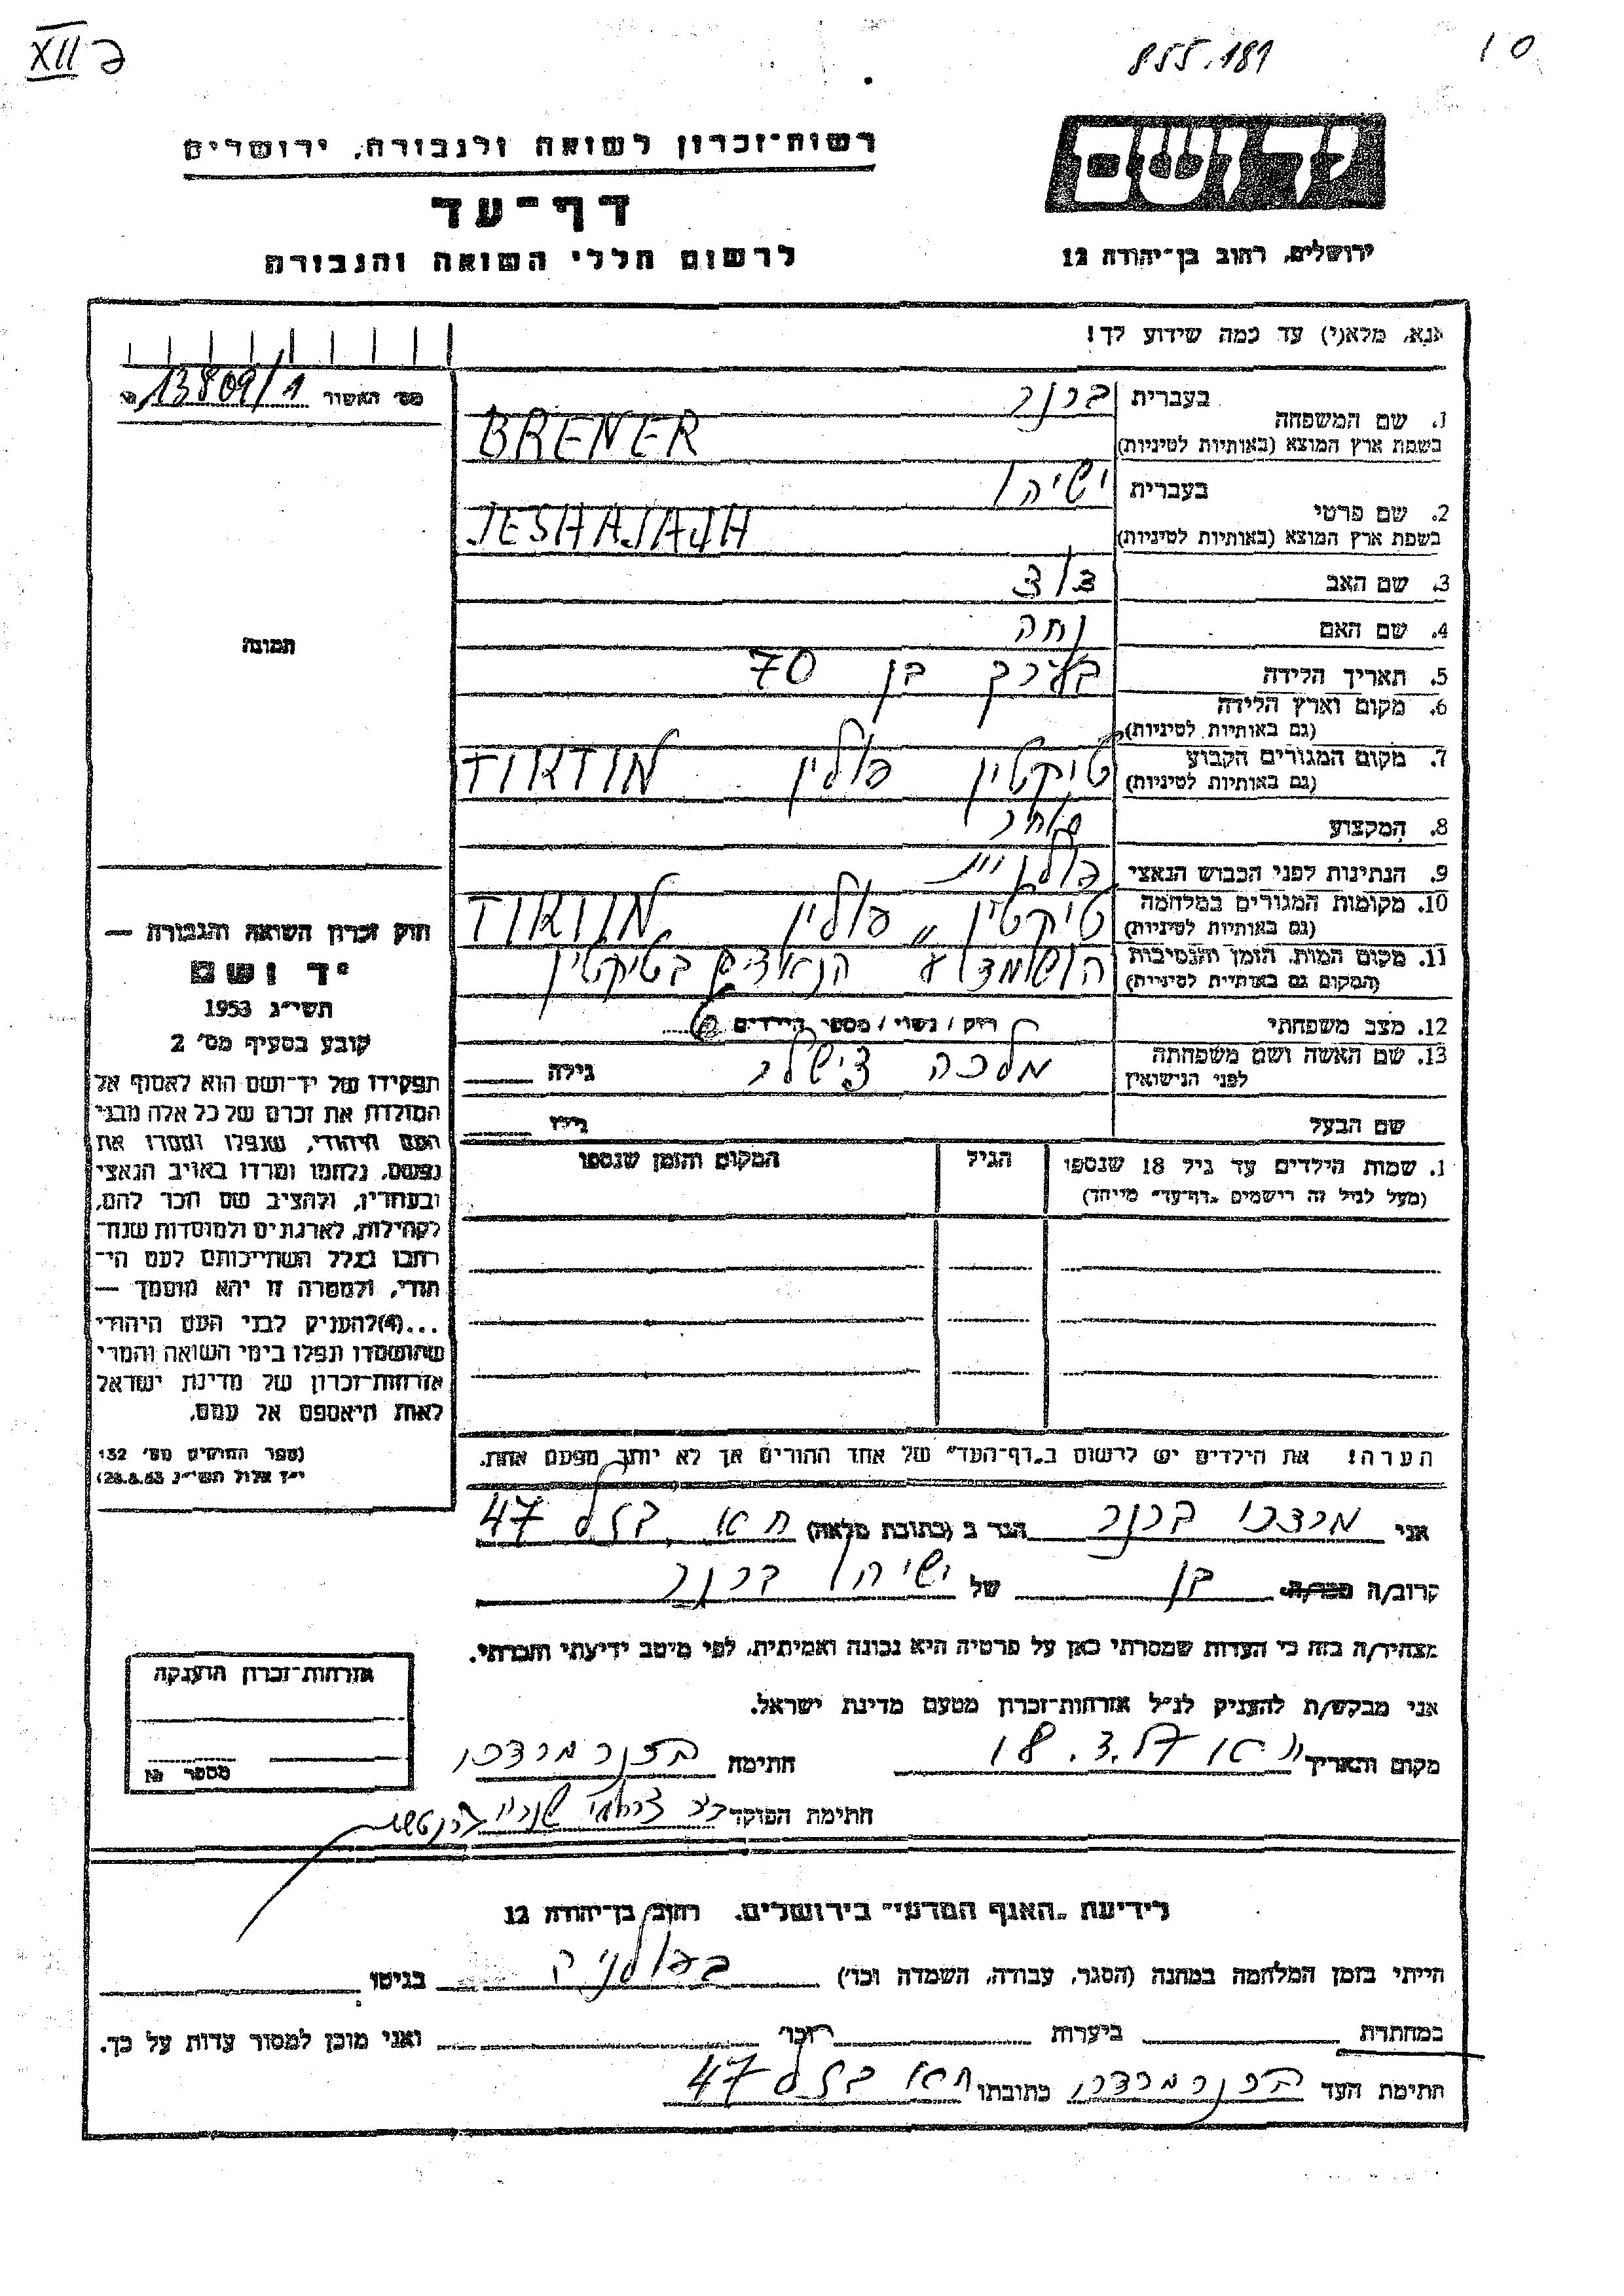 XII כ
855.189
10
רשות-זכרון לשואה ולגבורה, ירושלים
דף-עד
לרשום חללי השואה והגבורה
יד ושם
ירושלים, רחוב בן-יהודה 12
אנא, מלא(י) עד כמה שידוע לך!
מס' האשור 13809/1
1. שם המשפחה
בעברית ברנר
בשפת ארץ המוצא (באותיות לטיניות) BRENER
2. שם פרטי
בעברית ישיהו
בשפת ארץ המוצא (באותיות לטיניות) JESHAJAJH
3. שם האב דוד
4. שם האם
5. תאריך הלידה בערך בן 70
6. מקום וארץ הלידה
(גם באותיות לטיניות)
7. מקום המגורים הקבוע טיקטין פולין TIKTIN
(גם באותיות לטיניות)
8. המקצוע סוחר
9. הנתינות לפני הכבוש הנאצי
10. מקומות המגורים במלחמה טיקטין פולין TIKTIN
(גם באותיות לטיניות)
11. מקום המות, הזמן והנסיבות הושמד ע הנאצים בטיקטין
(המקום גם באותיות לטיניות)
12. מצב משפחתי רוק / נשוי / מספר הילדים
13. שם האשה ושם משפחתה מלכה גילה
לפני הנישואין
שם הבעל גילו
1. שמות הילדים עד גיל 18 שנספו הגיל המקום והזמן שנספו
(מעל לגיל זה רישמים "דף-עד" מייחד)
הערה! את הילדים יש לרשום ב"דף-העד" של אחד ההורים אך לא יותר מפעם אחת.
תמונה
חוק זכרון השואה והגבורה —
יד ושם
תשי"ג 1953
קובע בסעיף מס' 2
תפקידו של יד-ושם הוא לאסוף אל
המולדת את זכרם של כל אלה מבני
העם היהודי, שנפלו ומסרו את
נפשם, נלחמו ומרדו באויב הנאצי
ובעוזריו, ולהציב שם וזכר להם,
לקהילות, לארגונים ולמוסדות שנח-
רבו בגלל השתייכותם לעם הי-
הודי, ולמטרה זו יהא מוסמך —
...(4)להעניק לבני העם היהודי
שהושמדו ונפלו בימי השואה והמרי
אזרחות-זכרון של מדינת ישראל
לאות היאספם אל עמם.
(ספר החוקים מס' 132
י"ז אלול תשי"ג 28.8.53)
אני מרדכי ברנר הגר ב (כתובת מלאה) ת א 47
קרוב/ה מכר/ה בן של ישיהו ברנר
מצהיר/ה בזה כי העדות שמסרתי כאן על פרטיה היא נכונה ואמיתית, לפי מיטב ידיעתי והכרתי.
אני מבקש/ת להעניק לנ"ל אזרחות-זכרון מטעם מדינת ישראל.
מקום והתאריך 18.3.57 חתימה ברנר מרדכי
חתימת הפוקד
אזרחות-זכרון הוענקה
מספר №
לידיעת "האגף המדעי" בירושלים, רחוב בן-יהודה 12
הייתי בזמן המלחמה במחנה (הסגר, עבודה, השמדה וכו') בגיטו
במחתרת ביערות וכו' ואני מוכן למסור עדות על כך.
חתימת העד ברנר מרדכי כתובתו ת א 47